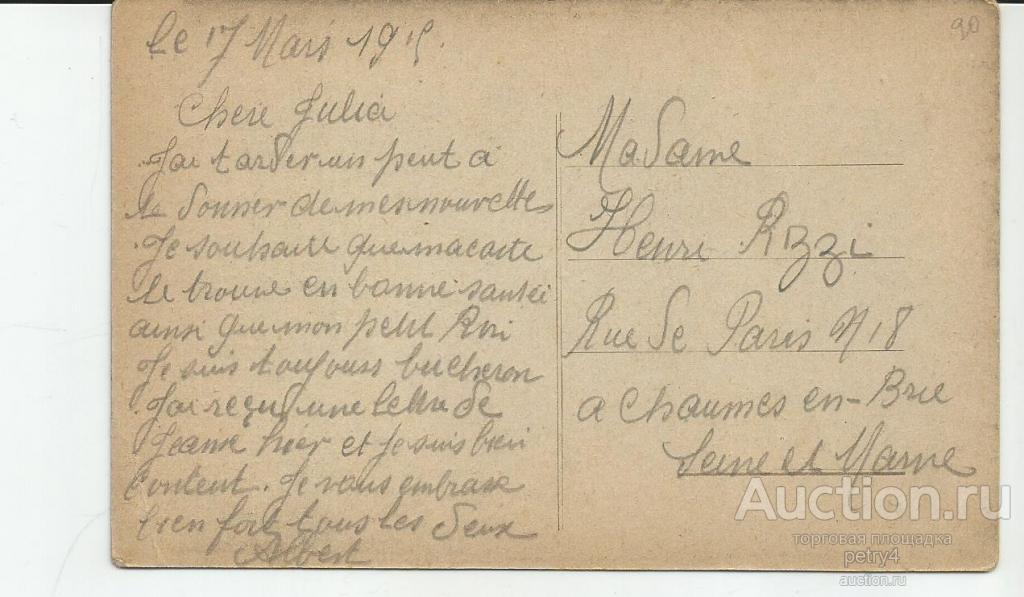 le 17 Mars 1915.
90
Chere Julia
J'ai tarder un peut a
te donner de mes nouvelles
Je souhaite que ma carte
te trouve en bonne santée
ainsi que mon petit
Je suis toujours bucheron
J'ai reçut une lettre de
Jeanne hier et je suis bien
content. Je vous embrasse
bien fort tous les deux
Albert
Madame
Henri Rizzi
Rue de Paris N 18
a Chaumes en-Brie
Seine et Marne
Auction.ru
торговая площадка
petry4
auction.ru